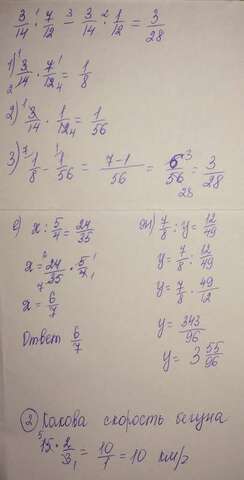 3/14 · 7/12 - 3/14 · 1/12 = 3/28
1) 3/14 · 7/12 = 1/8
2) 3/14 · 1/12 = 1/56
3) 1/8 - 1/56 = 7-1/56 = 6/56 = 3/28
е) x : 5/4 = 24/35
x = 24/35 · 5/4
x = 6/7
Ответ 6/7
ж) 7/8 : y = 12/49
y = 7/8 : 12/49
y = 7/8 · 49/12
y = 343/96
y = 3 55/96
② Какова скорость бегуна
15 · 2/3 = 10/1 = 10 км/г